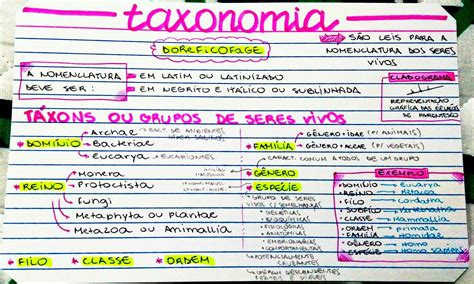 taxonomia
DOREFICOFAGE
→ SÃO LEIS PARA A
NOMENCLATURA DOS SERES
VIVOS
A NOMENCLATURA
DEVE SER:
= EM LATIM OU LATINIZADO
= EM NEGRITO E ITÁLICO OU SUBLINHADA
CLADOGRAMA
REPRESENTAÇÃO
GRÁFICA DAS RELAÇÕES
DE PARENTESCO
TÁXONS OU GRUPOS DE SERES VIVOS
* DOMÍNIO
Archae → BACT. DE AMBIENTES
Bacteriae
Eucarya → EUCARIONTES
* REINO
Monera
Protoctista
Fungi
Metaphyta ou plantae
Metazoa ou Animallia
* FILO * CLASSE * ORDEM
* FAMÍLIA
GÊNERO + IDAE (P/ ANIMAIS)
GÊNERO + ACEAE (P/ VEGETAIS)
CARACT. COMUM A TODOS DE UM GRUPO
* GÊNERO
* ESPÉCIE
GRUPO DE SERES
VIVOS C/ SEMELHANÇAS
* GENÉTICAS
* BIOQUÍMICAS
* ANATÔMICAS
* EMBRIONÁRIAS
* COMPORTAMENTAIS
* POTENCIALMENTE
CRUZANTES
DESCENDENTES
FÉRTEIS E VIÁVEIS
EXEMPLO
DOMÍNIO → Eucarya
REINO → Metazoa
FILO → Cordatha
SUBFILO → Vertebratha
CLASSE → Mammallia
ORDEM → primata
FAMÍLIA → Hominidae
GÊNERO → Homo
ESPÉCIE → Homo sapiens